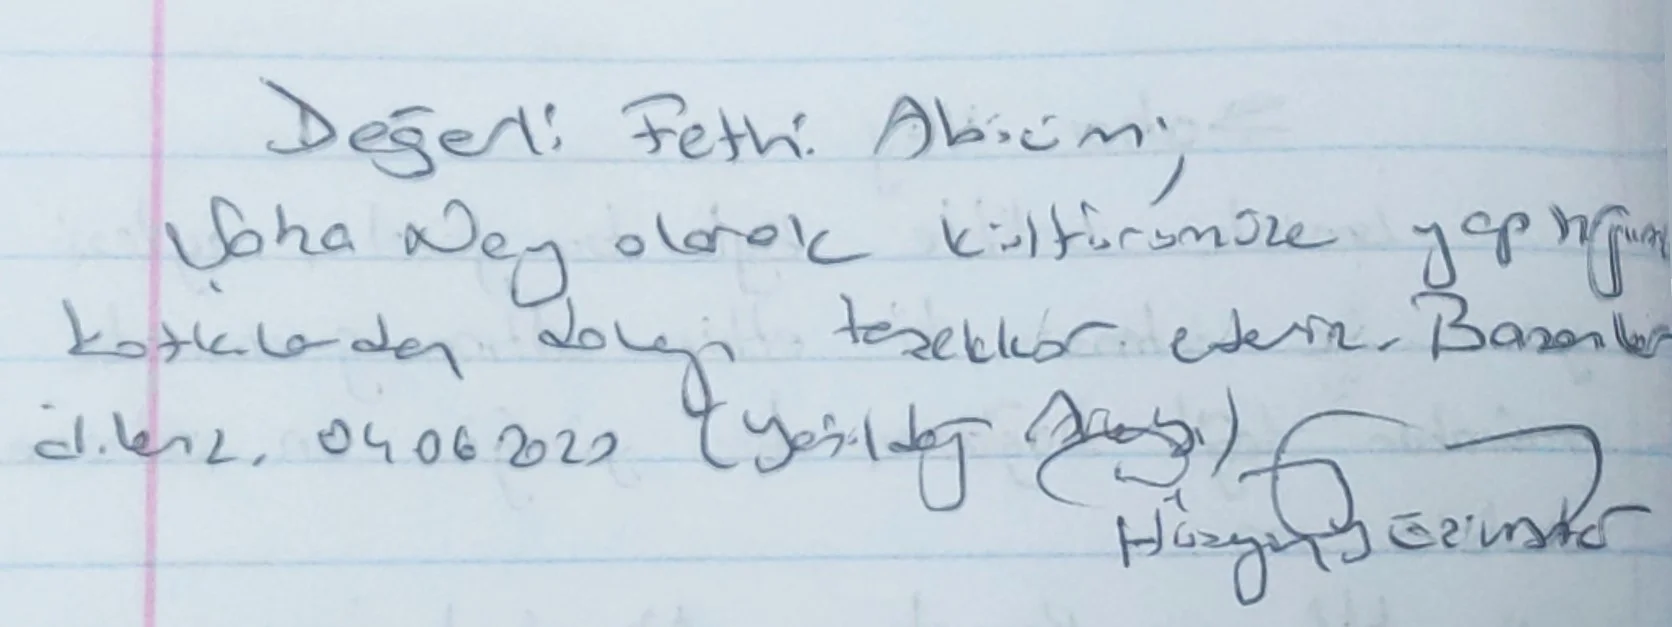 Değerli Fethi Abicim,
Şaha Ney olarak kültürümüze yaptığınız
katkılardan dolayı teşekkür ederiz. Başarılar
dileriz. 04 06 2022 (Yeşildağ